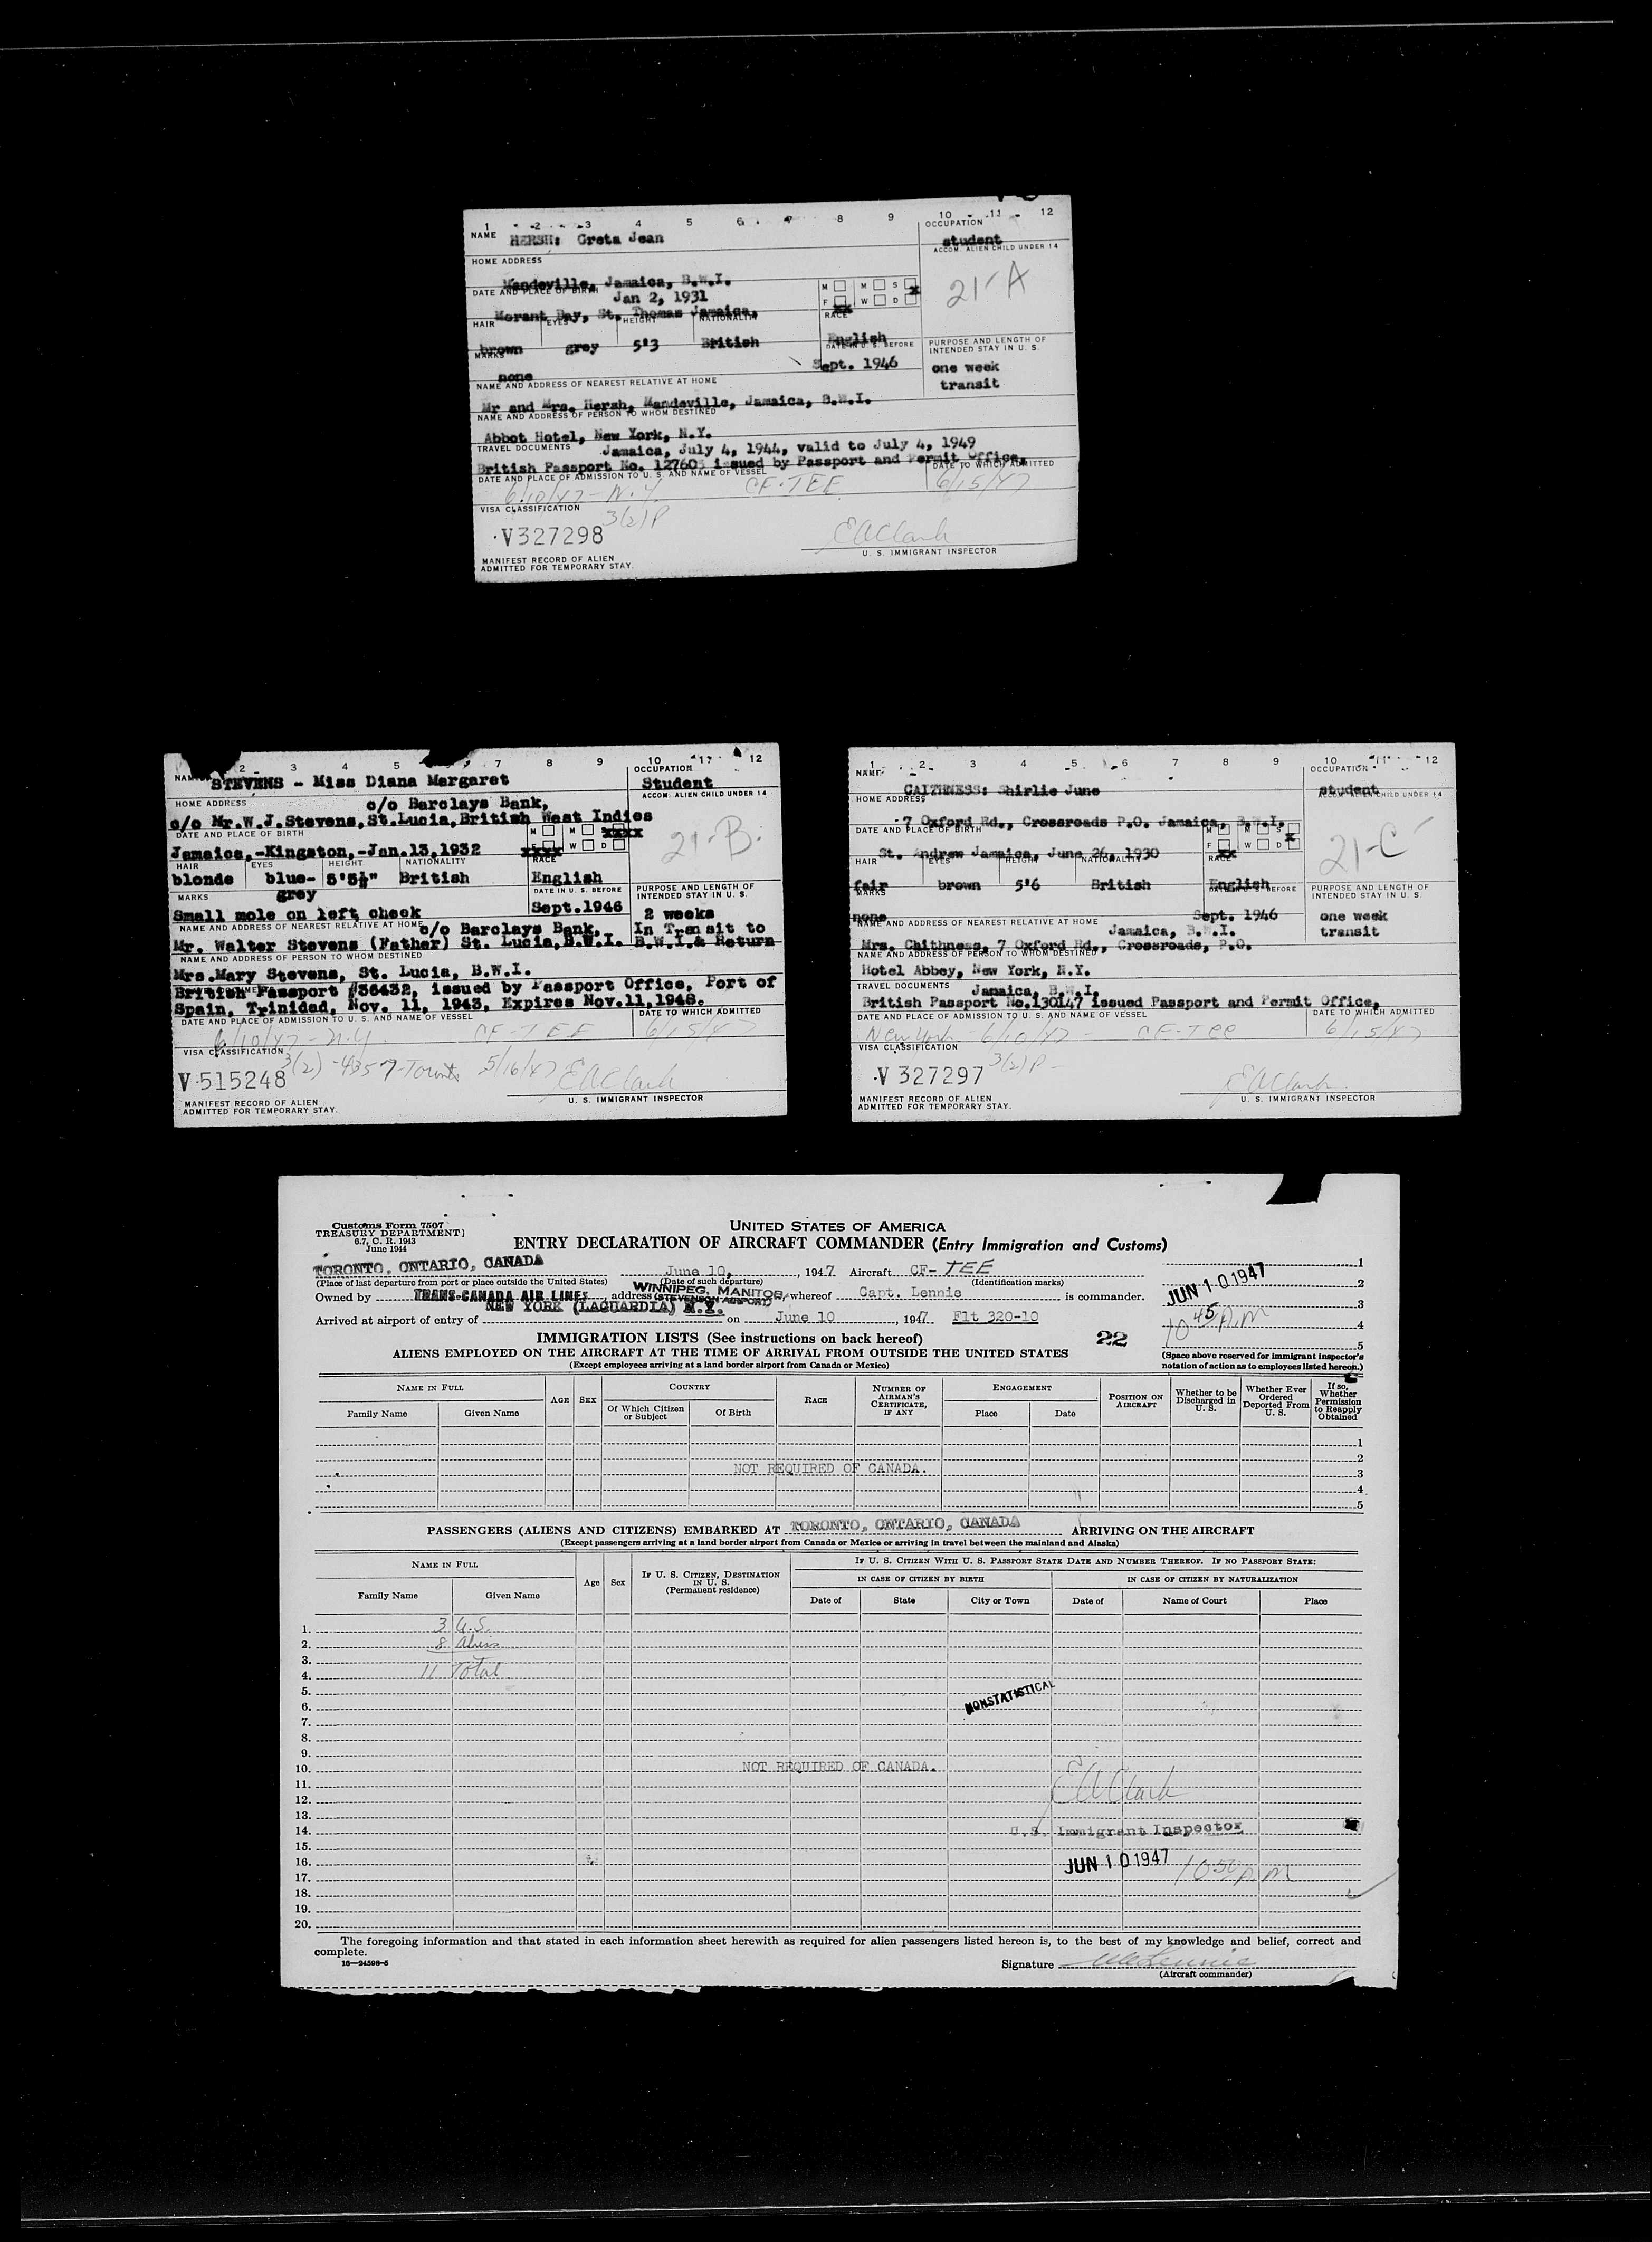 1 2 3 4 5 6 7 8 9 10 11 12
NAME HERSH: Greta Jean
OCCUPATION student
ACCOM. ALIEN CHILD UNDER 14
HOME ADDRESS
Mandeville, Jamaica, B.W.I.
DATE AND PLACE OF BIRTH Jan 2, 1931
M M S x
F xx W D
21-A
Morant Bay, St. Thomas Jamaica,
HAIR EYES HEIGHT NATIONALITY RACE
brown grey 5'3 British English
MARKS DATE IN U. S. BEFORE
PURPOSE AND LENGTH OF INTENDED STAY IN U. S.
none Sept. 1946 one week
NAME AND ADDRESS OF NEAREST RELATIVE AT HOME transit
Mr and Mrs. Hersh, Mandeville, Jamaica, B.W.I.
NAME AND ADDRESS OF PERSON TO WHOM DESTINED
Abbot Hotel, New York, N.Y.
TRAVEL DOCUMENTS Jamaica, July 4, 1944, valid to July 4, 1949
British Passport No. 127603 issued by Passport and Permit Office,
DATE AND PLACE OF ADMISSION TO U. S. AND NAME OF VESSEL DATE TO WHICH ADMITTED
6/10/47 - N.Y. CF-TEE 6/15/47
VISA CLASSIFICATION 3(2)P
V327298 EAClark
U. S. IMMIGRANT INSPECTOR
MANIFEST RECORD OF ALIEN
ADMITTED FOR TEMPORARY STAY.
2 3 4 5 7 8 9 10 11 12
STEVENS - Miss Diana Margaret
OCCUPATION Student
ACCOM. ALIEN CHILD UNDER 14
HOME ADDRESS c/o Barclays Bank,
c/o Mr.W.J.Stevens,St.Lucia,British West Indies
DATE AND PLACE OF BIRTH M M xxxx
Jamaica,-Kingston,-Jan.13,1932 xxxx W D
21-B
HAIR EYES HEIGHT NATIONALITY RACE
blonde blue- 5'5½" British English
grey
MARKS DATE IN U. S. BEFORE
PURPOSE AND LENGTH OF INTENDED STAY IN U. S.
Small mole on left cheek Sept.1946 2 weeks
NAME AND ADDRESS OF NEAREST RELATIVE AT HOME c/o Barclays Bank, In Transit to
Mr. Walter Stevens (Father) St. Lucia,B.W.I. B.W.I.& Return
NAME AND ADDRESS OF PERSON TO WHOM DESTINED
Mrs.Mary Stevens, St. Lucia, B.W.I.
British Passport #36432, issued by Passport Office, Port of
Spain, Trinidad, Nov. 11, 1943, Expires Nov.11,1948.
DATE AND PLACE OF ADMISSION TO U. S. AND NAME OF VESSEL DATE TO WHICH ADMITTED
6/10/47 - N.Y. CF-TEE 6/15/47
VISA CLASSIFICATION 3(2) - 4357 - Toronto 5/16/47 EAClark
V 515248
U. S. IMMIGRANT INSPECTOR
MANIFEST RECORD OF ALIEN
ADMITTED FOR TEMPORARY STAY.
1 2 3 4 5 6 7 8 9 10 11 12
NAME CAITHNESS: Shirlie June
OCCUPATION student
ACCOM. ALIEN CHILD UNDER 14
HOME ADDRESS
7 Oxford Rd., Crossroads P.O. Jamaica, B.W.I.
DATE AND PLACE OF BIRTH M M S x
F xx W D
21-C
St. Andrew Jamaica, June 26, 1930
HAIR EYES HEIGHT NATIONALITY RACE
fair brown 5'6 British English
MARKS DATE IN U. S. BEFORE
PURPOSE AND LENGTH OF INTENDED STAY IN U. S.
none Sept. 1946 one week
NAME AND ADDRESS OF NEAREST RELATIVE AT HOME Jamaica, B.W.I. transit
Mrs. Chithness, 7 Oxford Rd., Crossroads, P.O.
NAME AND ADDRESS OF PERSON TO WHOM DESTINED
Hotel Abbey, New York, N.Y.
TRAVEL DOCUMENTS Jamaica, B.W.I.
British Passport No.130147 issued Passport and Permit Office,
DATE AND PLACE OF ADMISSION TO U. S. AND NAME OF VESSEL DATE TO WHICH ADMITTED
New York - 6/10/47 - CF-TEE 6/15/47
VISA CLASSIFICATION 3(2)P -
V 327297 EAClark
U. S. IMMIGRANT INSPECTOR
MANIFEST RECORD OF ALIEN
ADMITTED FOR TEMPORARY STAY.
Customs Form 7507
TREASURY DEPARTMENT)
6.7, C. R. 1943
June 1944
UNITED STATES OF AMERICA
ENTRY DECLARATION OF AIRCRAFT COMMANDER (Entry Immigration and Customs)
TORONTO, ONTARIO, CANADA June 10, 1947 Aircraft CF-TEE
(Place of last departure from port or place outside the United States) (Date of such departure) (Identification marks)
Owned by TRANS-CANADA AIR LINES address WINNIPEG, MANITOBA (STEVENSON AIRPORT) whereof Capt. Lennie is commander.
Arrived at airport of entry of NEW YORK (LAGUARDIA) N.Y. on June 10, 1947 Flt 320-10
1
2
3
4
5
JUN 10 1947
10 45 p.m
(Space above reserved for immigrant inspector's notation of action as to employees listed hereon.)
IMMIGRATION LISTS (See instructions on back hereof) 22
ALIENS EMPLOYED ON THE AIRCRAFT AT THE TIME OF ARRIVAL FROM OUTSIDE THE UNITED STATES
(Except employees arriving at a land border airport from Canada or Mexico)
NAME IN FULL AGE SEX COUNTRY RACE NUMBER OF AIRMAN'S CERTIFICATE, IF ANY ENGAGEMENT POSITION ON AIRCRAFT Whether to be Discharged in U. S. Whether Ever Ordered Deported From U. S. If so, Whether Permission to Reapply Obtained
Family Name Given Name Of Which Citizen or Subject Of Birth Place Date
1
2
NOT REQUIRED OF CANADA.
3
4
5
PASSENGERS (ALIENS AND CITIZENS) EMBARKED AT TORONTO, ONTARIO, CANADA ARRIVING ON THE AIRCRAFT
(Except passengers arriving at a land border airport from Canada or Mexico or arriving in travel between the mainland and Alaska)
NAME IN FULL Age Sex IF U. S. CITIZEN, DESTINATION IN U. S. (Permanent residence) IF U. S. CITIZEN WITH U. S. PASSPORT STATE DATE AND NUMBER THEREOF. IF NO PASSPORT STATE:
IN CASE OF CITIZEN BY BIRTH IN CASE OF CITIZEN BY NATURALIZATION
Family Name Given Name Date of State City or Town Date of Name of Court Place
1. 3 U.S.
2. 8 Aliens
3.
4. 11 Total
5.
6. NONSTATISTICAL
7.
8.
9.
10. NOT REQUIRED OF CANADA.
11. EAClark
12.
13.
14. U.S. Immigrant Inspector
15.
16. JUN 10 1947 10 50 p.m
17.
18.
19.
20.
The foregoing information and that stated in each information sheet herewith as required for alien passengers listed hereon is, to the best of my knowledge and belief, correct and
complete.
16—24598-5
Signature
(Aircraft commander)